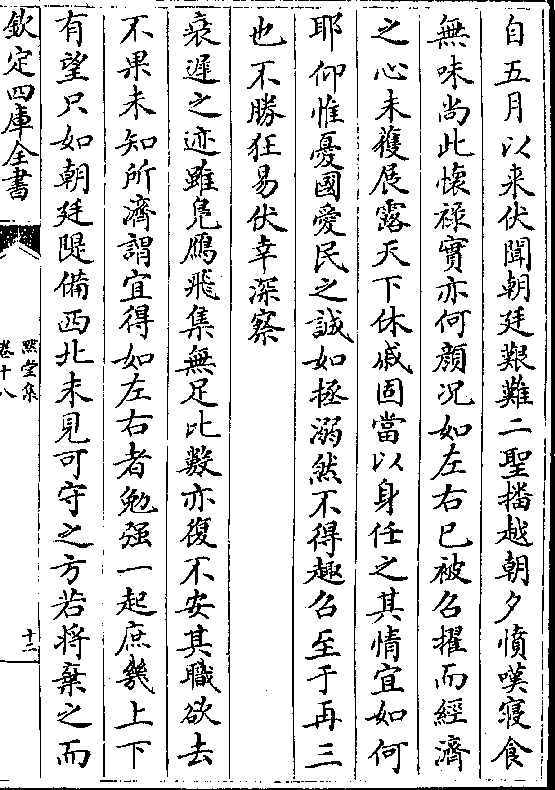 自五月以来伏聞朝廷艱難二聖播越朝夕憤嘆寝食
無味尚此懐祿實亦何顔况如左右已被召擢而經濟
之心未獲展露天下休戚固當以身任之其情宜如何
耶仰惟憂國愛民之誠如拯溺然不得趣召至于再三
也不勝狂易伏幸深察
衰遲之迹雖鳬鴈飛集無足比數亦復不安其職欲去
不果未知所濟謂宜得如左右者勉强一起庶幾上下
有望只如朝廷隄備西北未見可守之方若將棄之而
欽定四庫全書
黙堂集
卷十八
十三